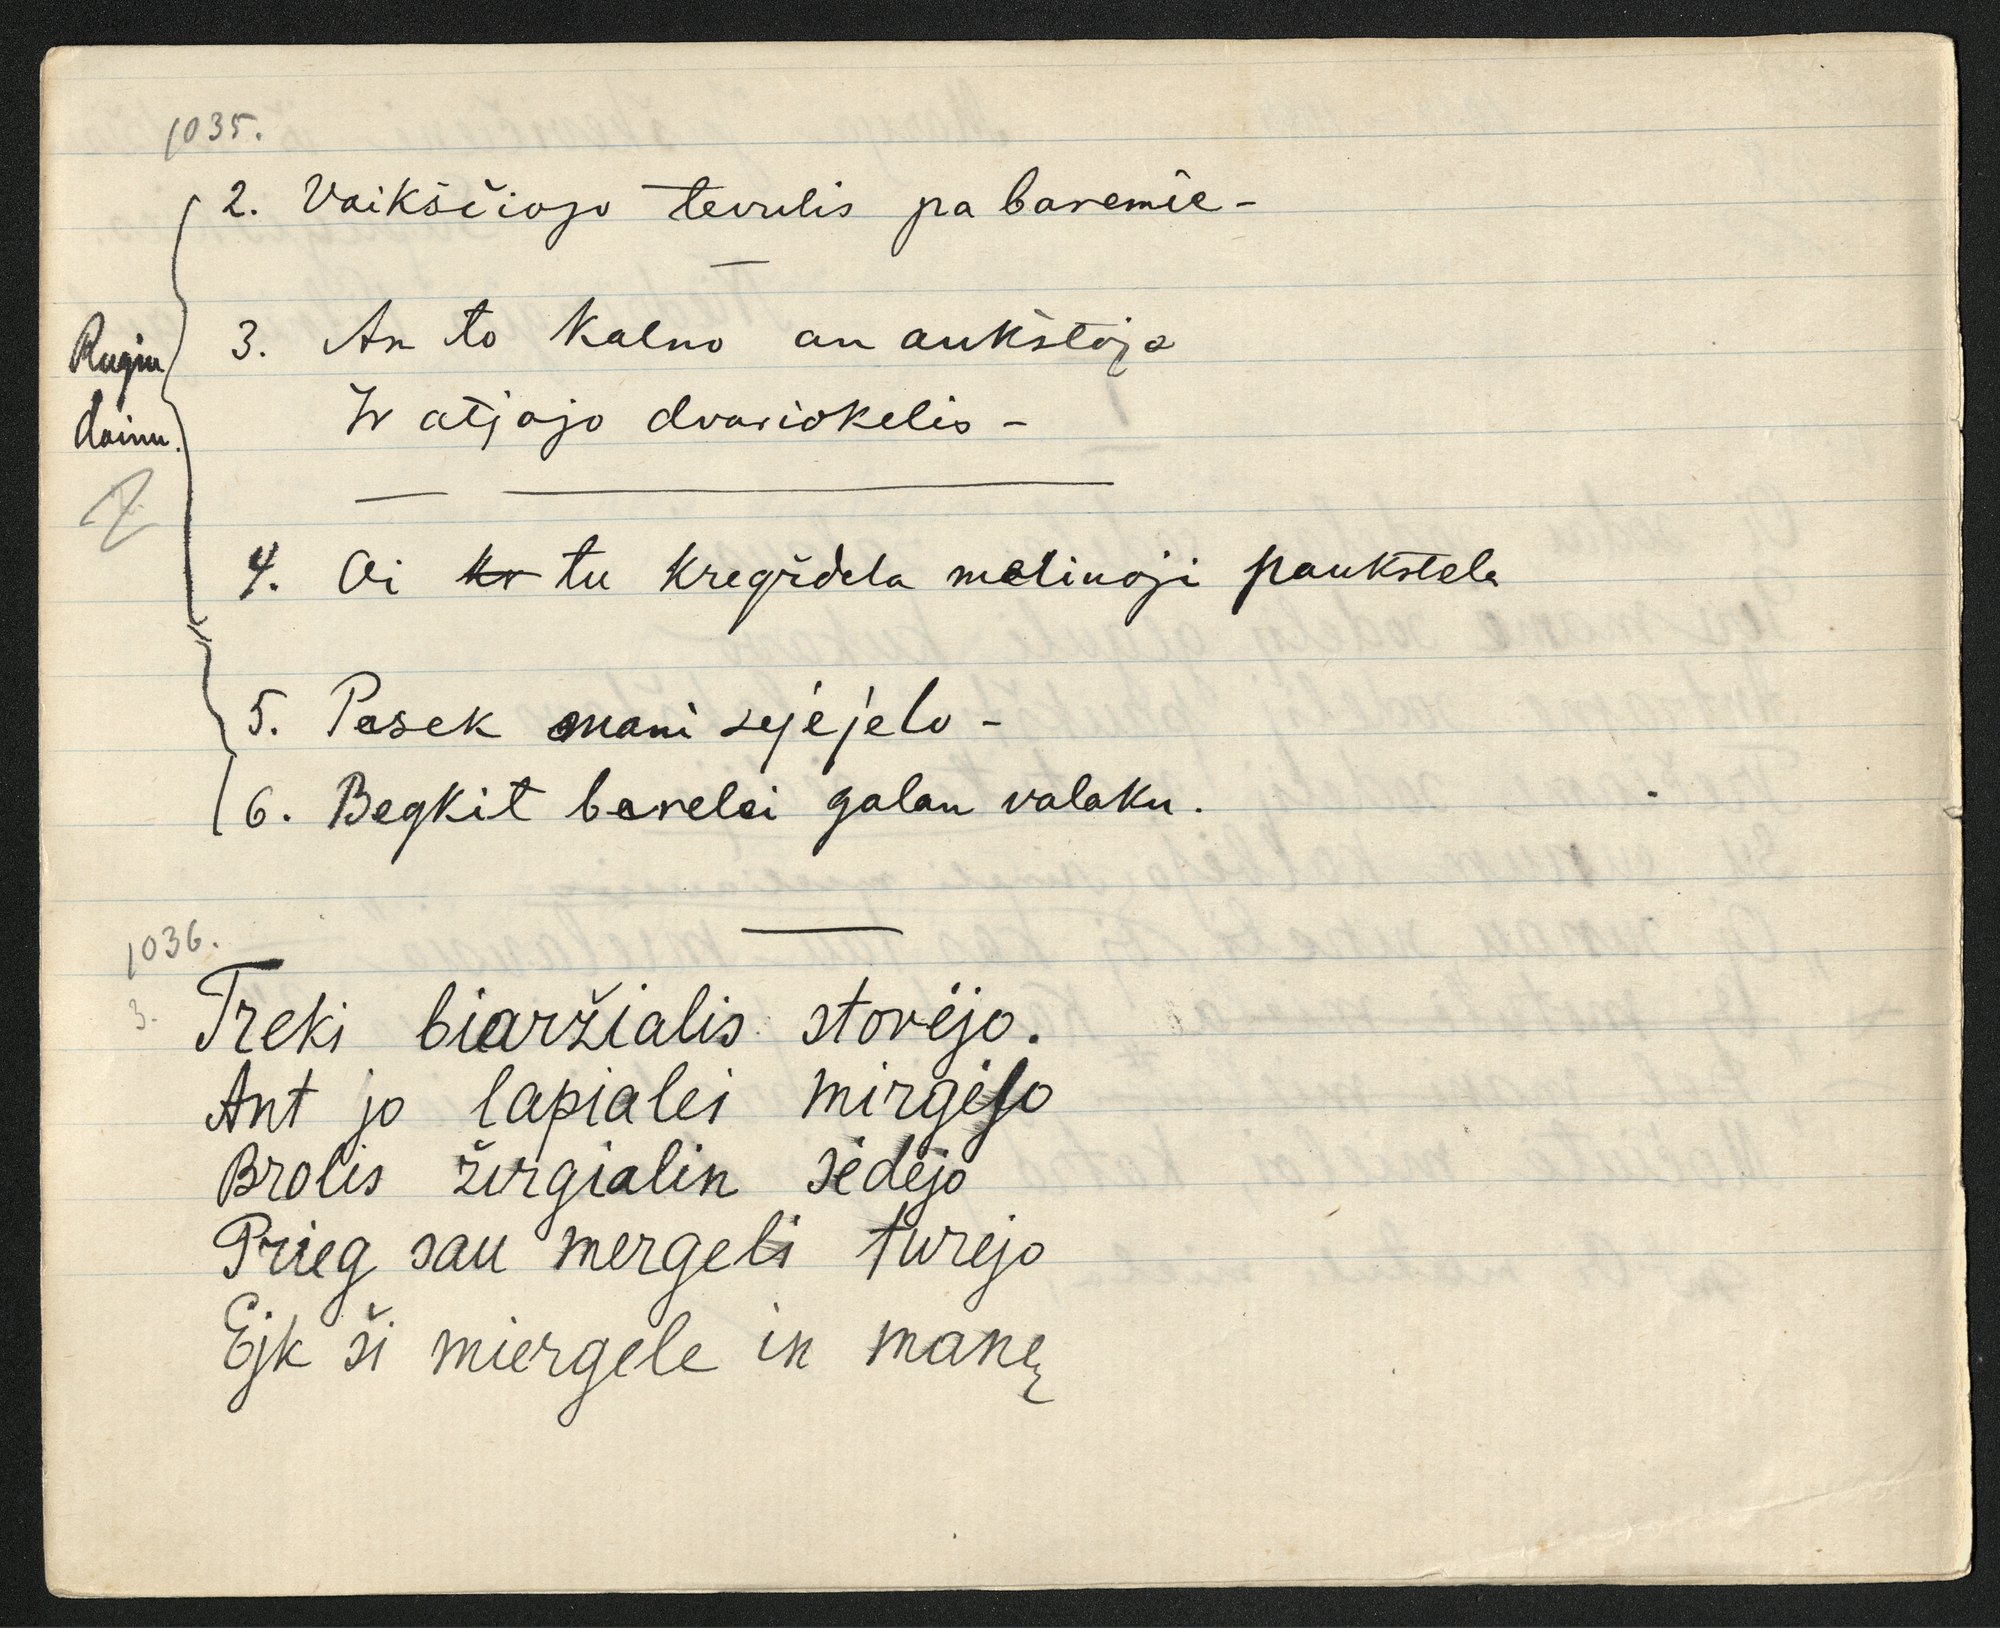 1035.
2. Vaikščiojo tevulis pa baremie -
3. An to kalno an aukštojo
Ir atjojo dvariokelis -
Rugiu
dainu.
4. Oi kr tu kregždela melinoji paukštela
5. Pasek mani sejejelo -
6. Begkit berelei galan valaku.
1036.
3. Treki biaržialis storėjo.
Ant jo lapialei mirgėjo
Brolis žirgialin sėdėjo
Prieg sau mergeli turėjo
Ejk ši miergele in manę